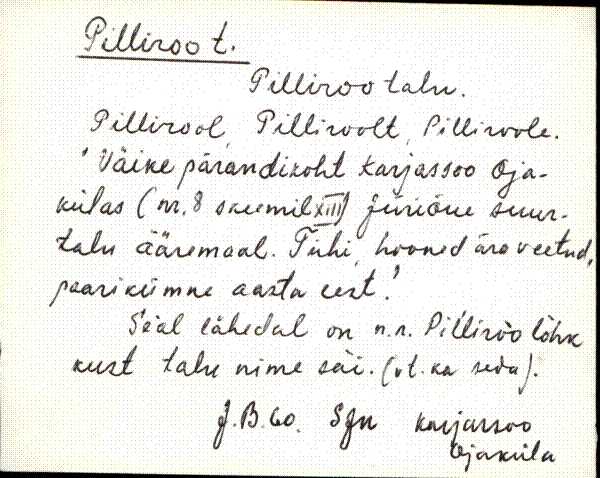 Pilliroo t.
Pilliroo talu.
Pillirool, Pilliroolt, Pilliroole.
"Väike pärandikoht Karjassoo Oja-
külas (nr. 8 skeemil XIII) Jüriõue suur-
talu ääremaal. Tühi, hooned ära veetud,
paarikümne aasta eest."
Sääl lähedal on n.n. Pilliroo lõhk
kust talu nime sai. (vt. ka seda).
J.B. 60. SJn Karjassoo
Ojaküla